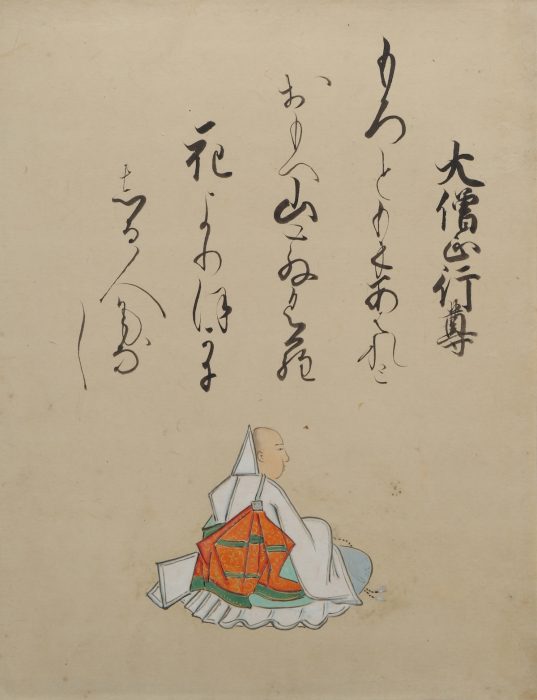 大僧正行尊
もろともにあはれと
おもへ山さくら
花よりほかに
しる人もな
し